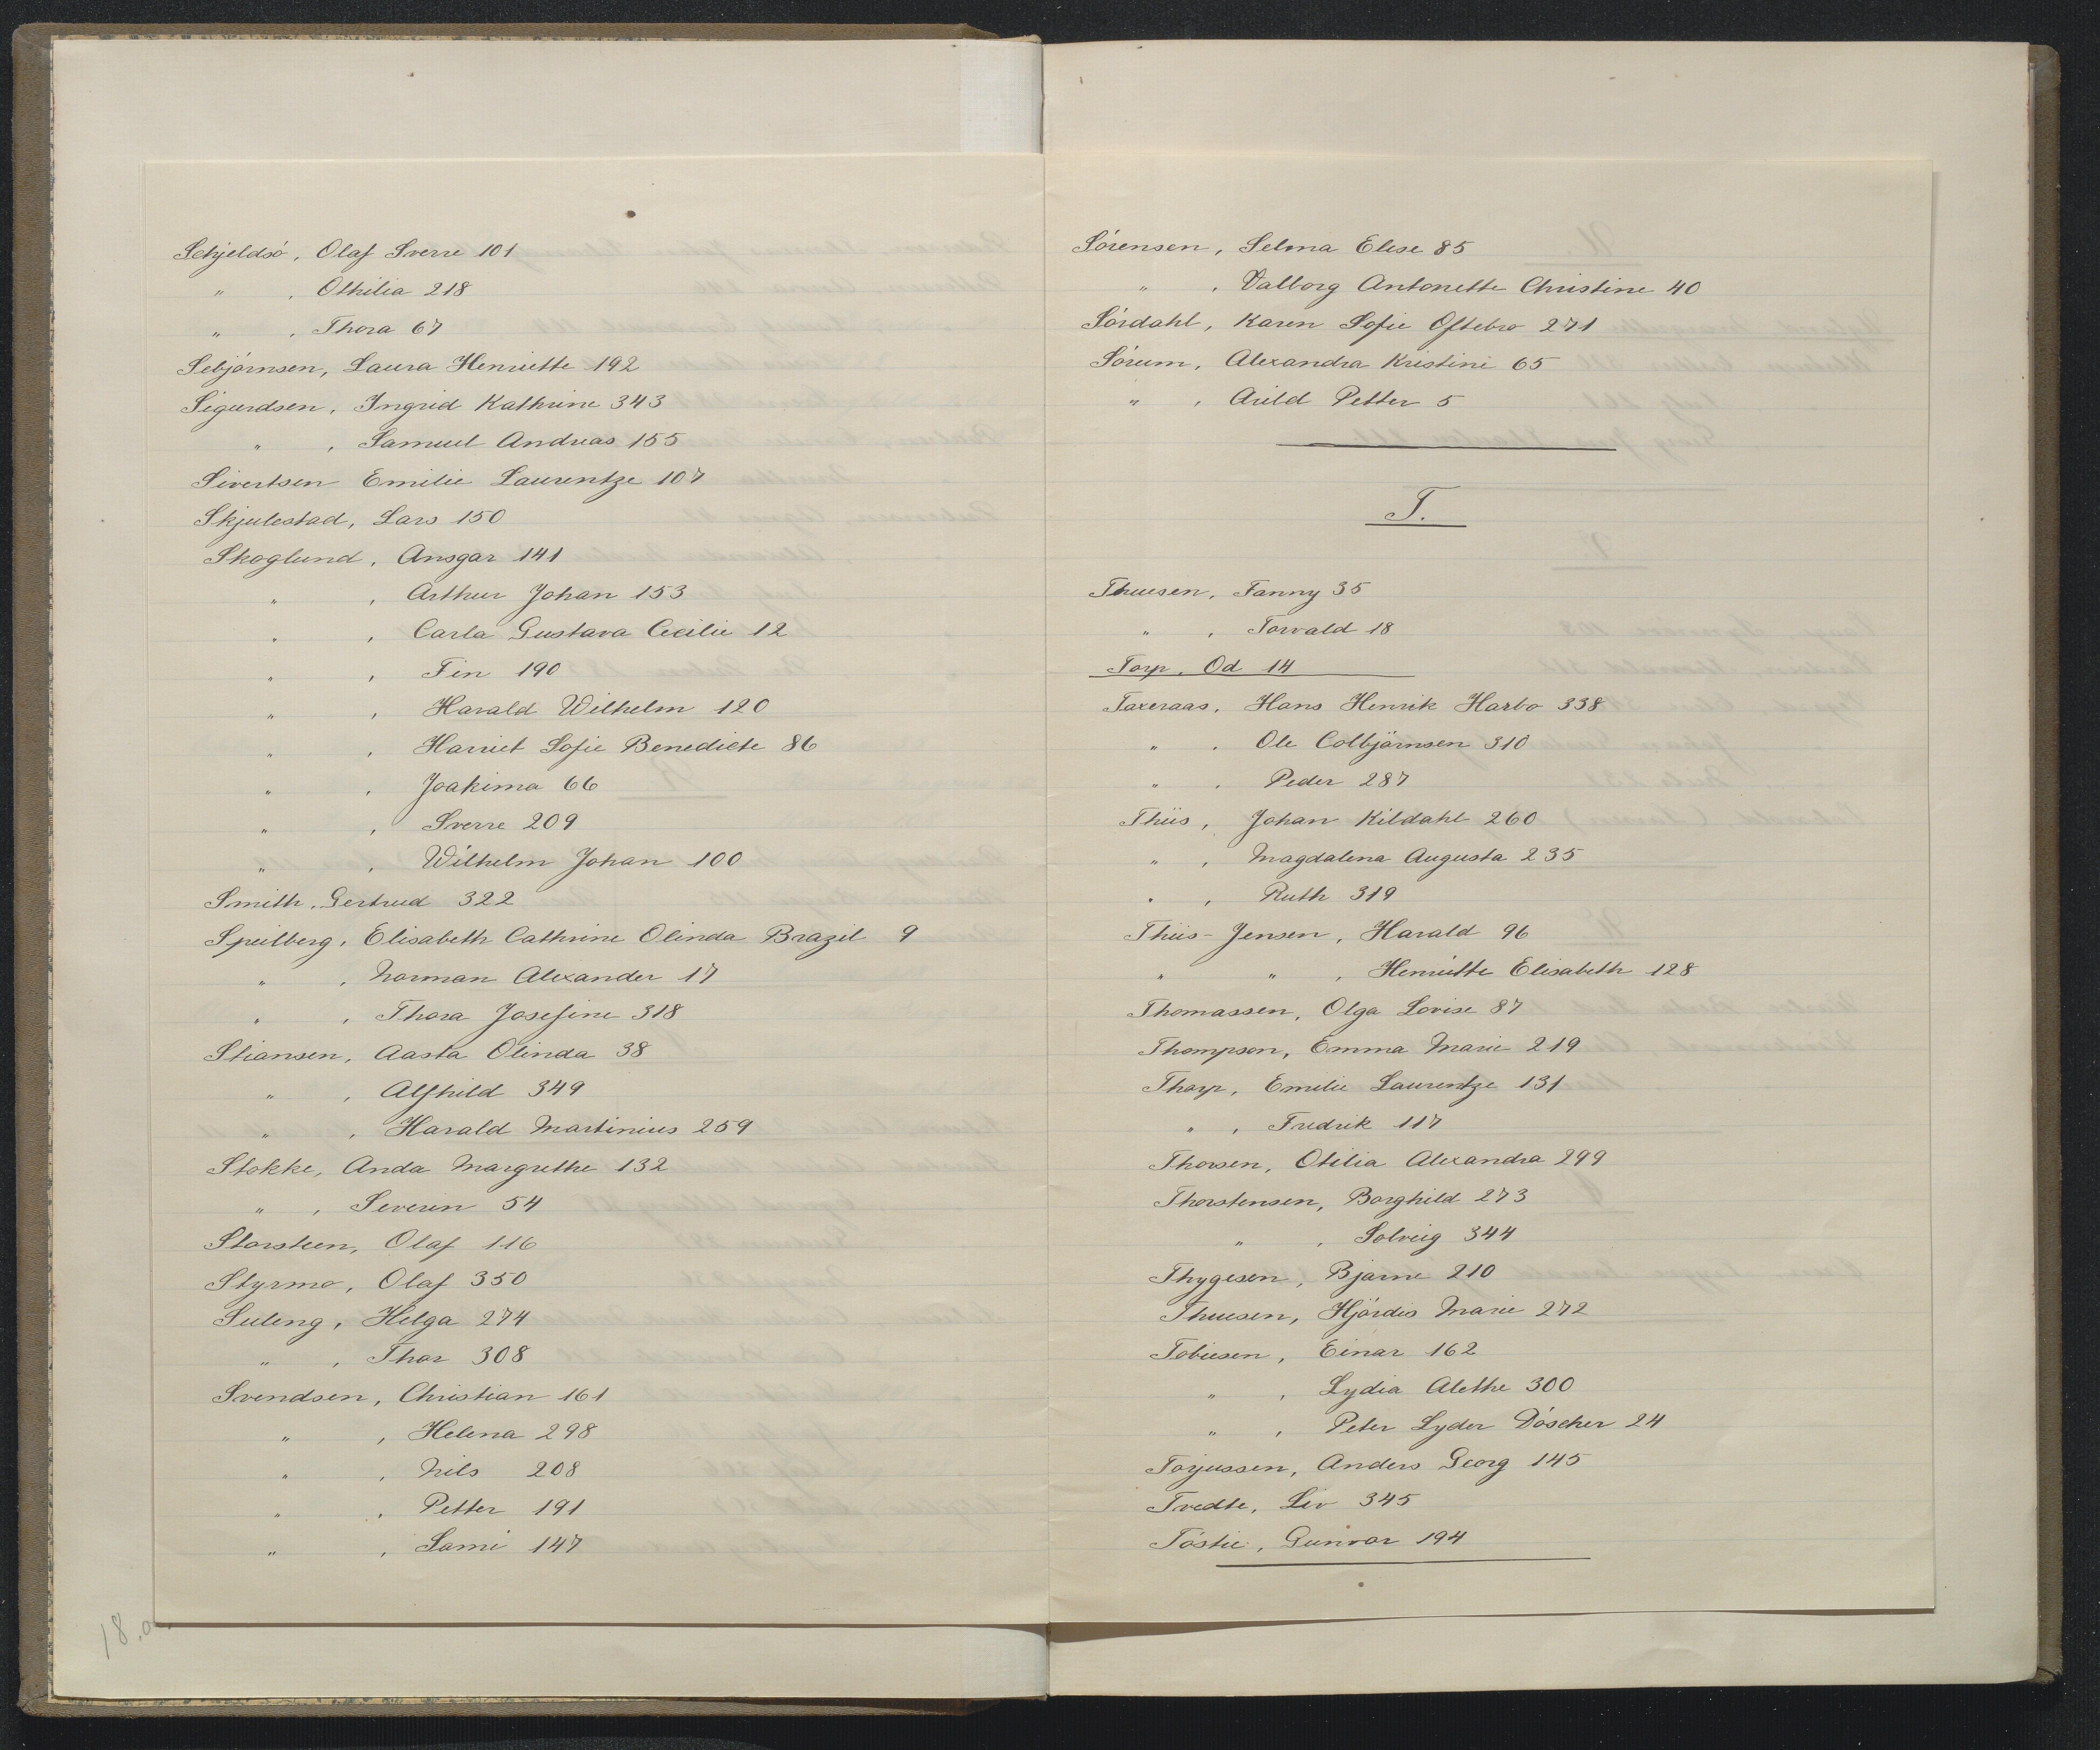 Schjeldsö, Olaf Sverre 101
" , Othilia 218
" , Thora 67
Sebjörnsen, Laura Henriette 192
Sigurdsen, Ingrid Kathrine 343
" , Samuel Andreas 155
Sivertsen Emilie Laurentze 107
Skjulestad, Lars 150
Skoglund, Ansgar 141
" , Arthur Johan 153
" , Carla Gustava Cecilie 12
" , Fin 190
" , Harald Wilhelm 120
" , Harriet Sofie Benedicte 86
" , Joakima 66
" , Sverre 209
" , Wilhelm Johan 100
Smith, Gertrud 322
Speilberg, Elisabeth Cathrine Olinda Brazil 9
" , Norman Alexander 17
" , Thora Josefine 318
Stiansen, Aasta Olinda 38
" , Alfhild 349
" , Harald Martinius 259
Stokke, Anda Margrethe 132
" , Severin 54
Storsteen, Olaf 116
Styrmo, Olaf 350
Suleng, Helga 274
" , Thor 308
Svendsen, Christian 161
" , Helena 298
" , Nils 208
" , Petter 191
" , Sami 147
18.0
Sörensen, Selma Elise 85
" , Valborg Antonette Christine 40
Sördahl, Karen Sofie Oftebro 271
Sörum, Alexandra Kristine 65
" , Arild Petter 5
T.
Thuesen, Fanny 35
" , Torvald 18
Torp, Od 14
Taxeraas, Hans Henrik Harbo 338
" , Ole Colbjörnsen 310
" , Peder 287
Thiis, Johan Kildahl 260
" , Magdalena Augusta 235
" , Ruth 319
Thiis-Jensen, Harald 96
" " , Henriette Elisabeth 128
Thomassen, Olga Lovise 87
Thompson, Emma Marie 219
Thorp, Emilie Laurentze 131
" , Fredrik 117
Thorsen, Otilia Alexandra 299
Thorstensen, Borghild 273
" , Solveig 344
Thygesen, Bjarne 210
Thuesen, Hjördis Marie 272
Tobiesen, Einar 162
" , Lydia Alethe 300
" , Peter Lyder Döscher 24
Torjussen, Anders Georg 145
Tvedte, Liv 345
Töstie, Gunvor 194